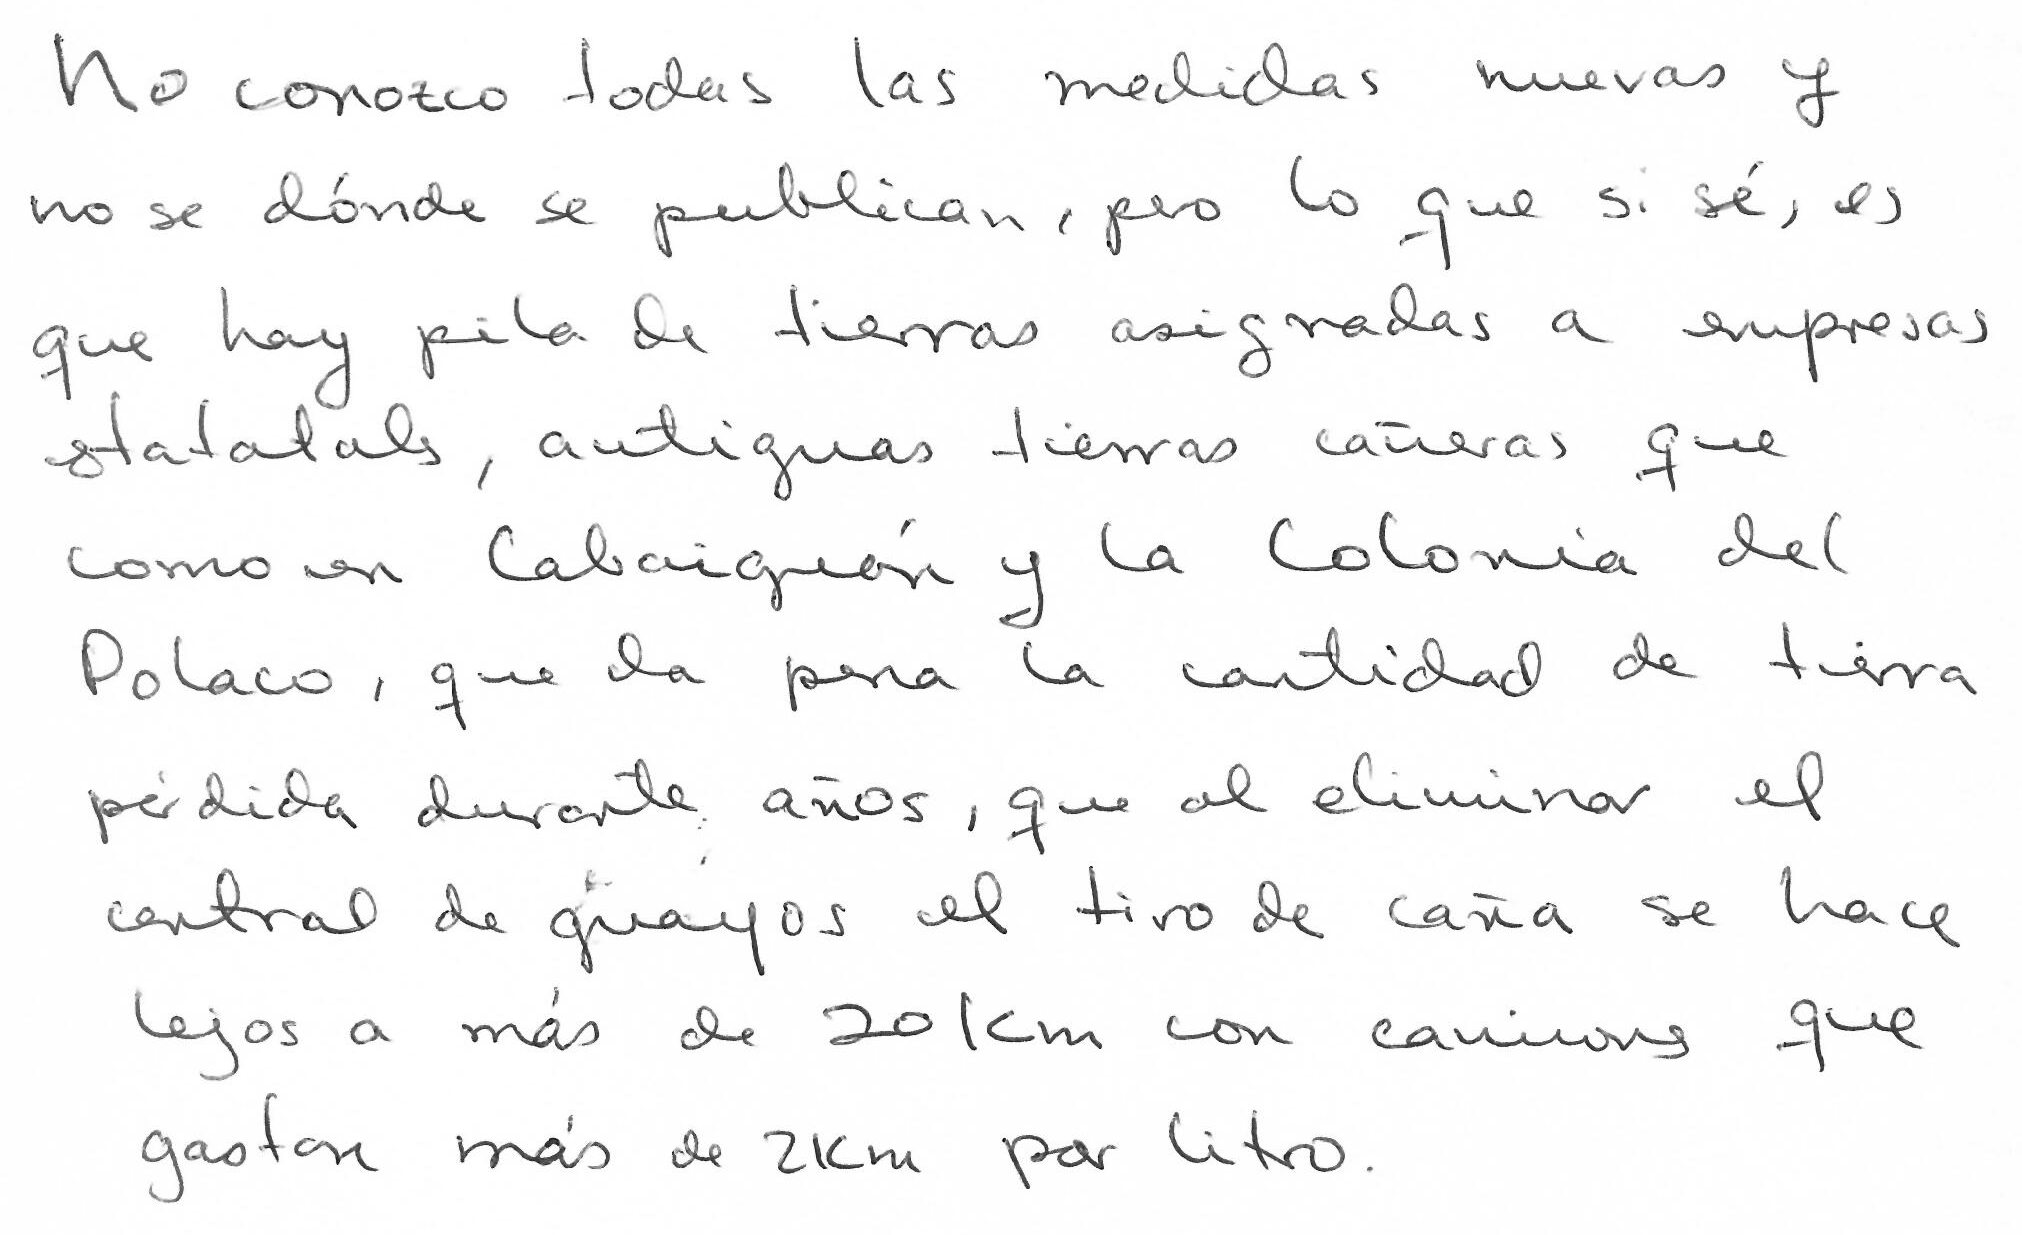 No conozco todas las medidas nuevas y
no se dónde se publican, pero lo que si sé, es
que hay pila de tierras asignadas a empresas
estatatales, antiguas tierras cañeras que
como en Cabaiguán y la Colonia del
Polaco, que da pena la cantidad de tierra
pérdida durante años, que al eliminar el
central de guayos el tiro de caña se hace
lejos a más de 20km con camiones que
gastan más de 2Km por litro.